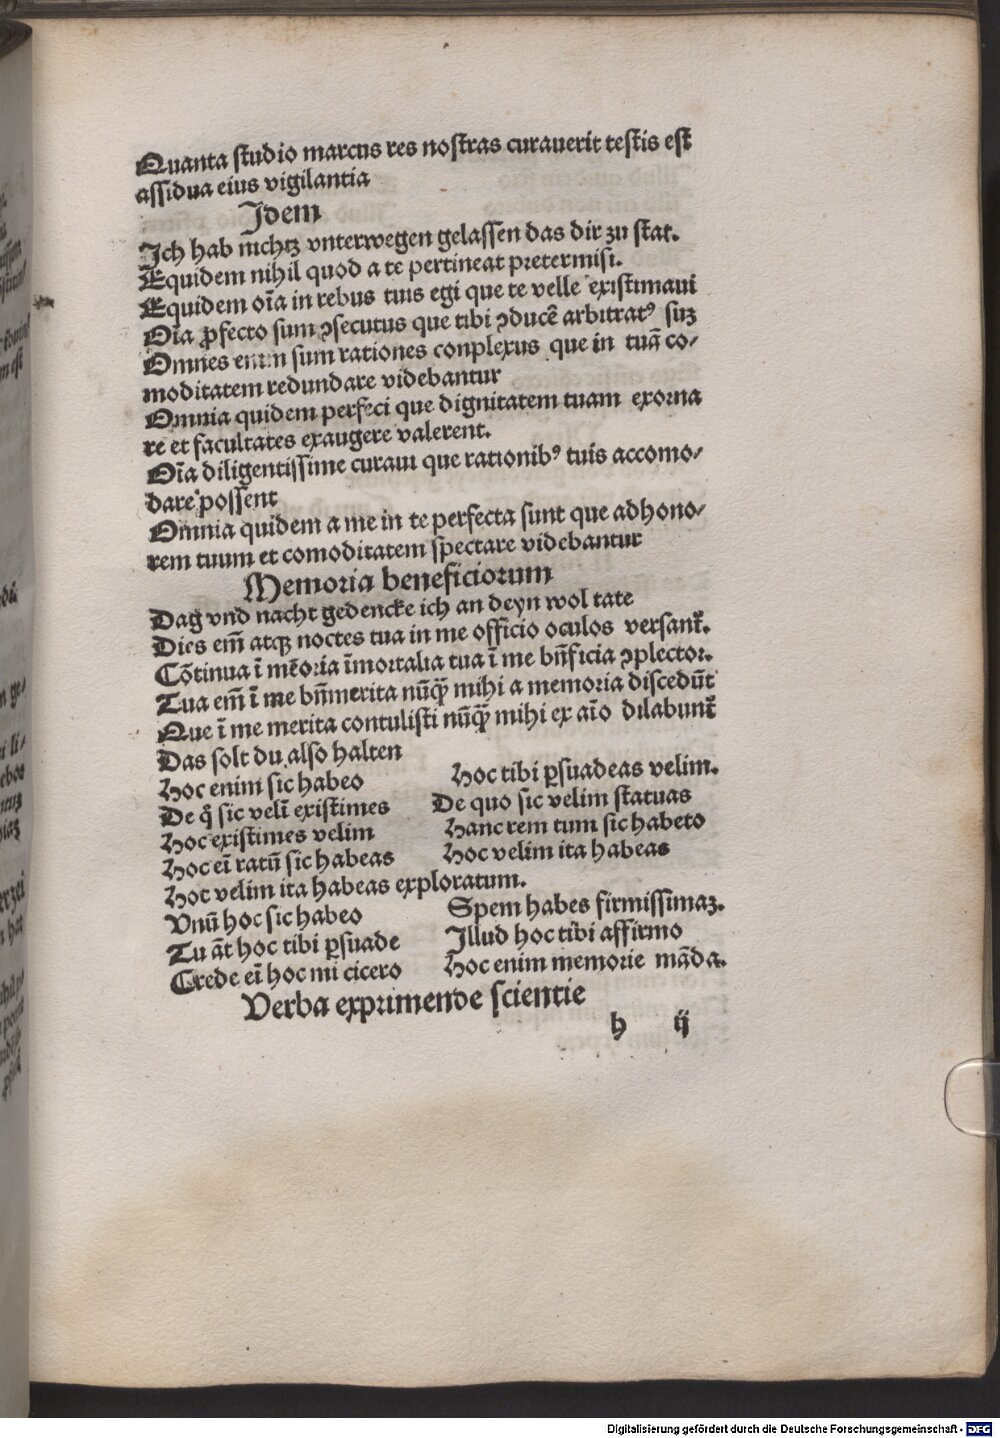 Quanta studio marcus res nostras curauerit testis est
assidua eius vigilantia
Idem
Ich hab nichtz vnterwegen gelassen das dir zu stat.
Equidem nihil quod a te pertineat pretermisi.
Equidem oīa in rebus tuis egi que te velle existimaui
Oīa ꝓfecto sum ꝯsecutus que tibi ꝯducē arbitratꝰ suꝫ
Omnes enim sum rationes conplexus que in tuā co⸗
moditatem redundare videbantur
Omnia quidem perfeci que dignitatem tuam exorna
re et facultates exaugere valerent.
Oīa diligentissime curaui que rationibꝰ tuis accomo⸗
dare possent
Omnia quidem a me in te perfecta sunt que adhono⸗
rem tuum et comoditatem spectare videbantur
Memoria beneficiorum
Dag vnd nacht gedencke ich an deyn wol tate
Dies em̄ atqꝫ noctes tua in me officio oculos versant̄.
Cōtinua ī mēoria īmortalia tua ī me bn̄ficia ꝯplector.
Tua em̄ ī me bn̄merita nūq̄ mihi a memoria discedūt
Que ī me merita contulisti nūq̄ mihi ex aīo dilabunt̄
Das solt du also halten
Hoc enim sic habeo Hoc tibi ꝑsuadeas velim.
De q̊ sic velī existimes De quo sic velim statuas
Hoc existimes velim Hanc rem tum sic habeto
Hoc eī ratū sic habeas Hoc velim ita habeas
Hoc velim ita habeas exploratum.
Vnū hoc sic habeo Spem habes firmissimaꝫ.
Tu āt hoc tibi ꝑsuade Illud hoc tibi affirmo
Crede eī hoc mi cicero Hoc enim memorie māda.
Verba exprimende scientie
h ij
Digitalisierung gefördert durch die Deutsche Forschungsgemeinschaft - DFG